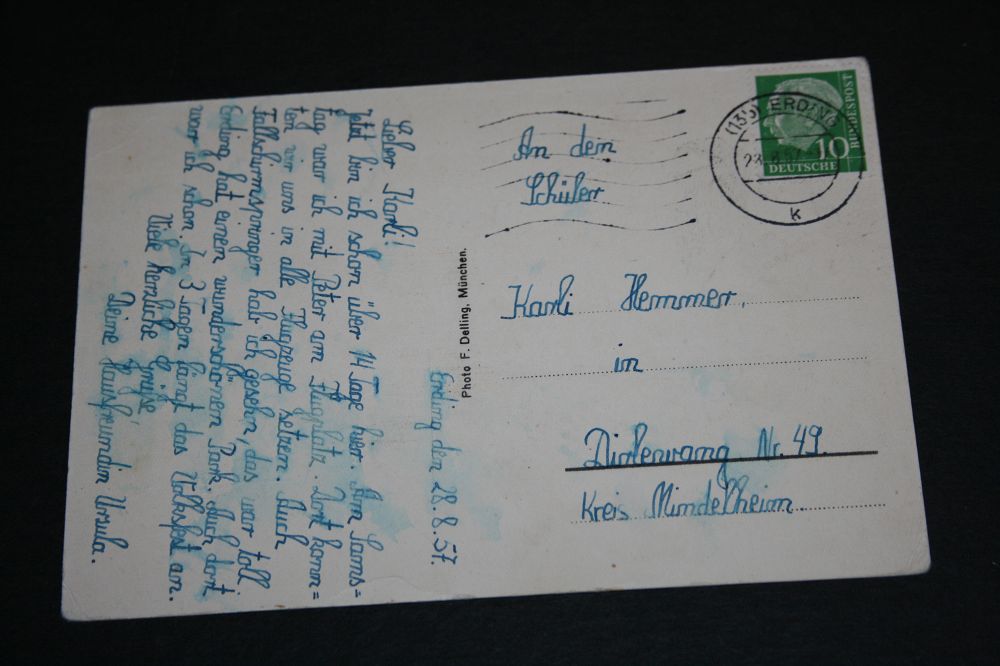 Erding den 28.8.57.
Lieber Karli!
Jetzt bin ich schon über 14 Tage hier. Am Sams=
tag war ich mit Peter am Flugplatz. Dort konn=
ten wir uns in alle Flugzeuge setzen. Auch
Fallschirmspringer hab ich gesehn, das war toll
Erding hat einen wunderschönen Park. Auch dort
war ich schon. In 3 Tagen fängt das Volksfest an.
Viele herzliche Grüße
Deine Hausfreundin Ursula.
Photo F. Delling, München.
(13b) ERDING
k
10
DEUTSCHE
BUNDESPOST
An den
Schüler
Karli Hemmer,
in
Dirlewang Nr. 49.
Kreis Mindelheim